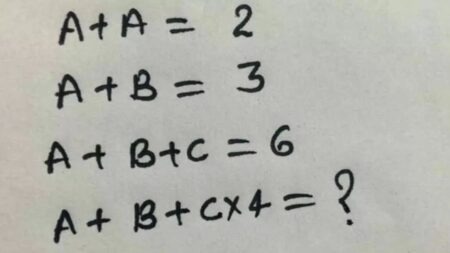 A+A = 2
A + B = 3
A + B+C = 6
A + B + C×4 = ?